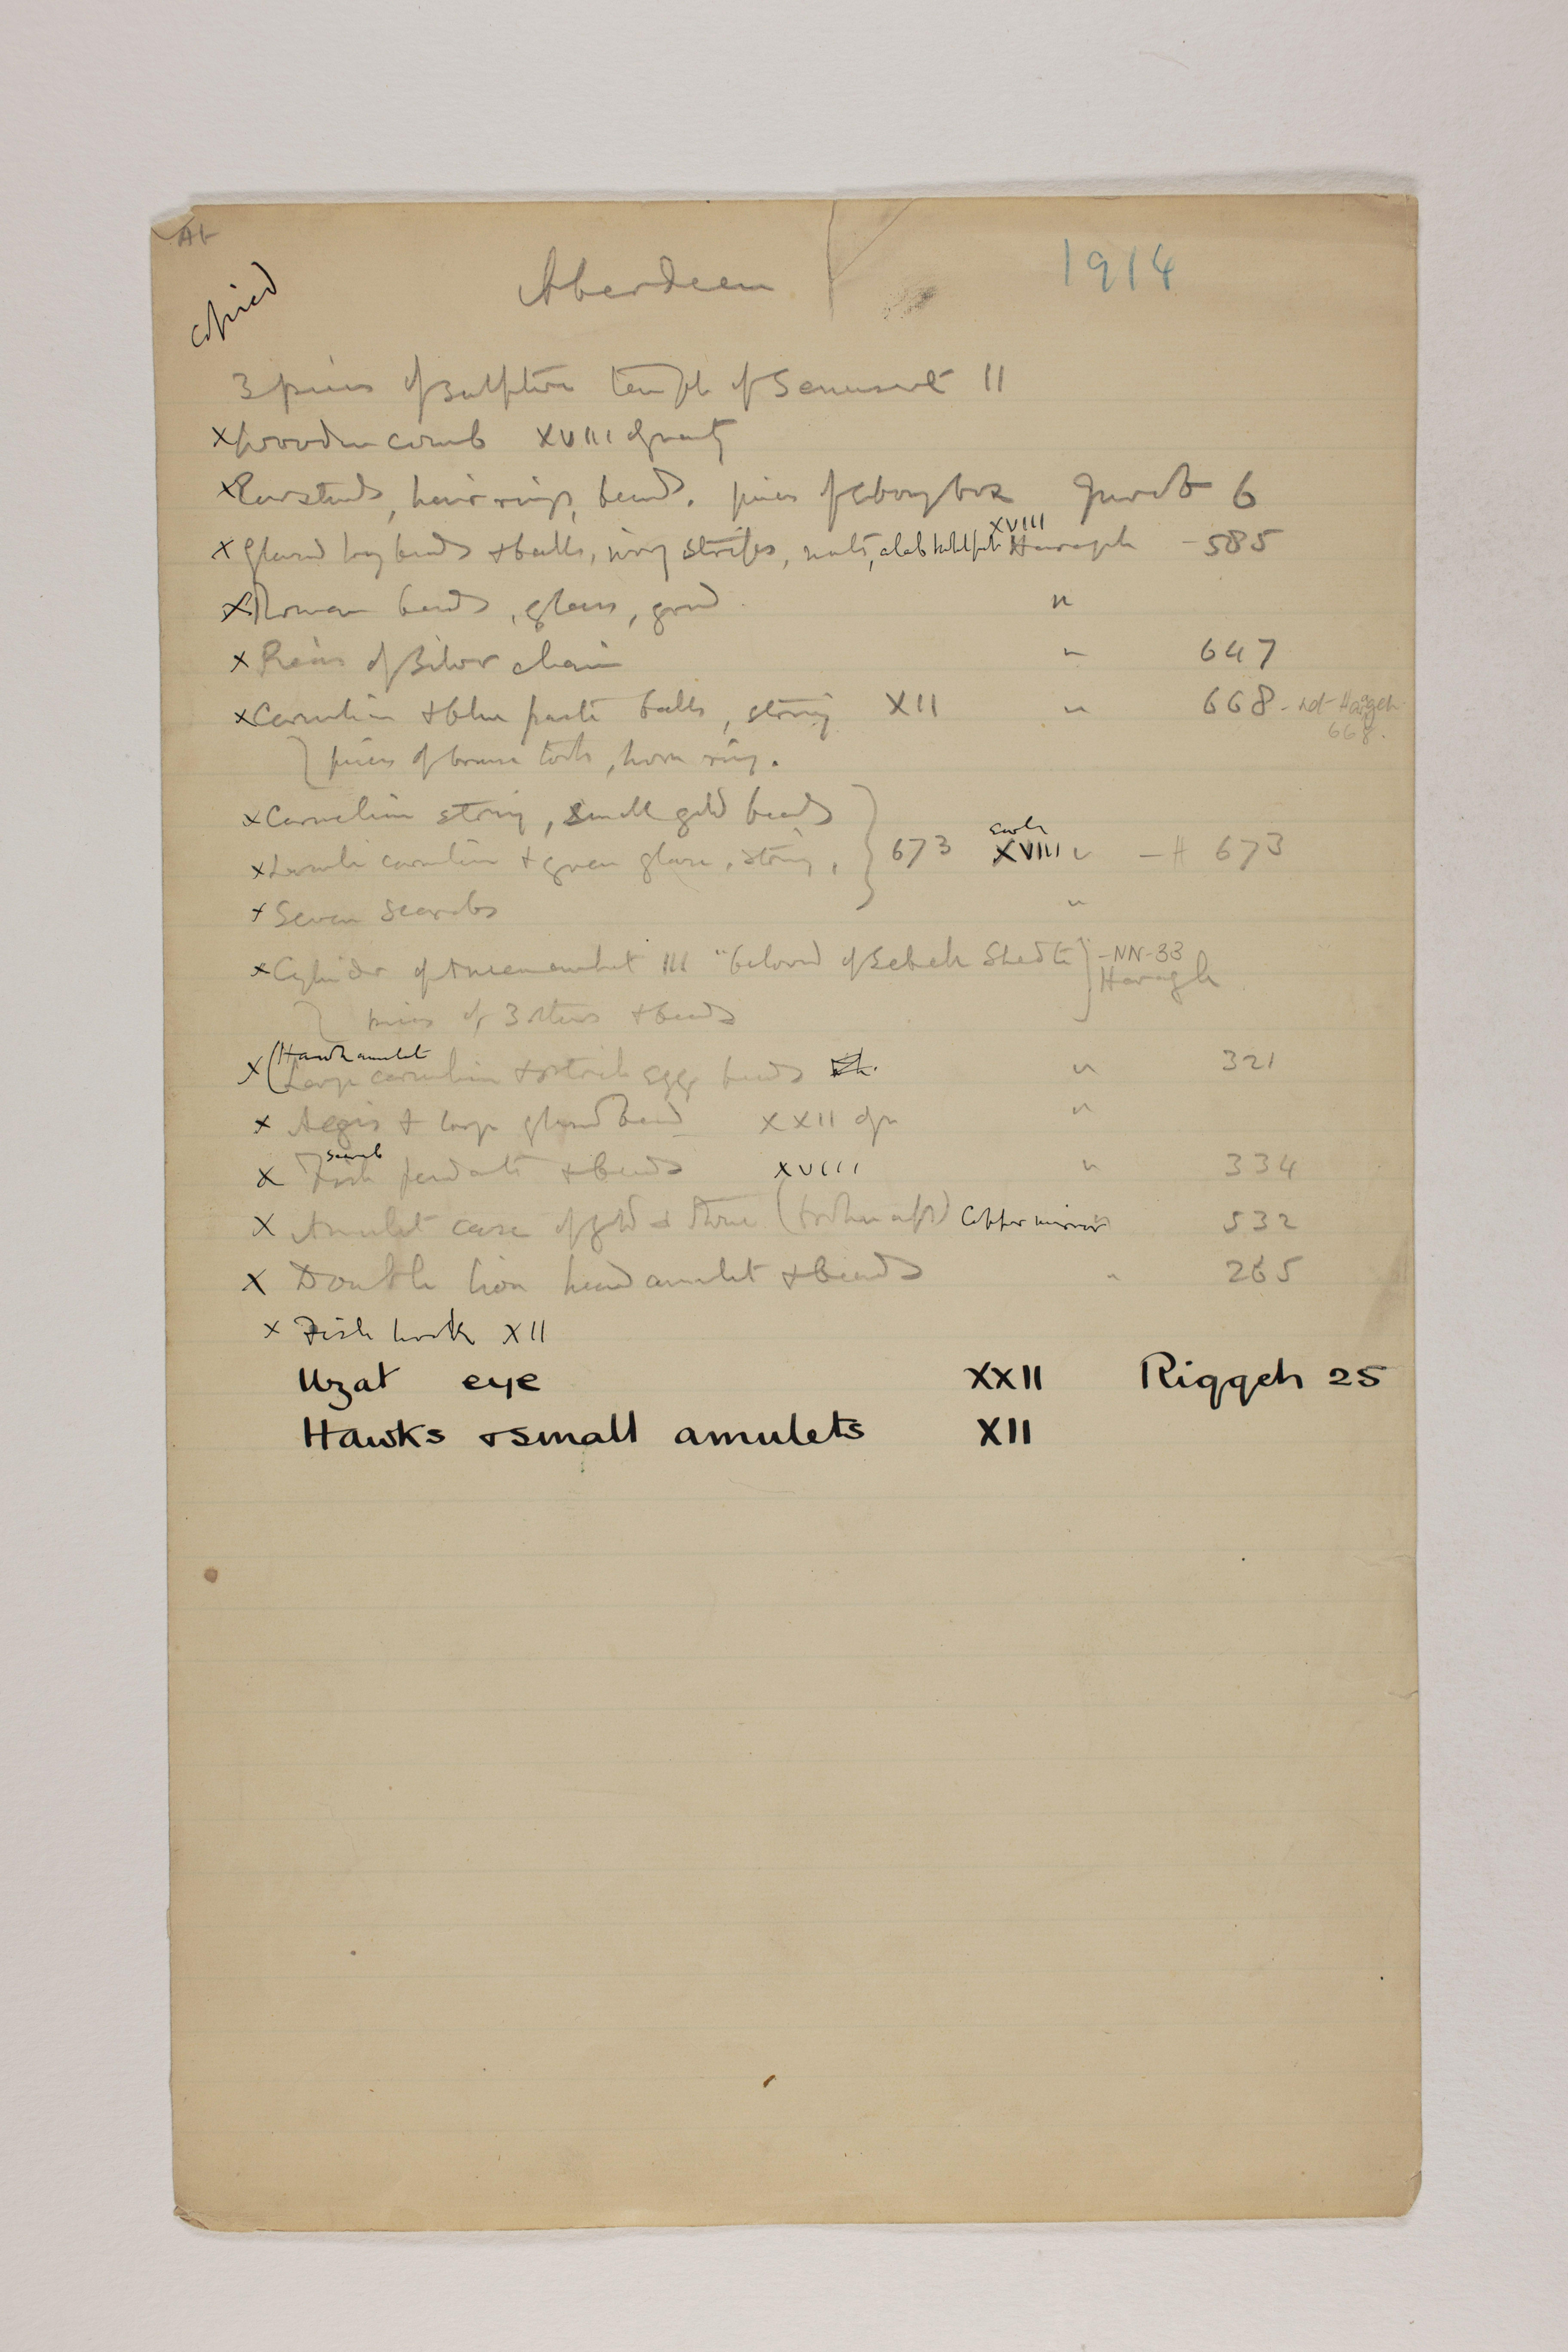 Ab
copied
Aberdeen 1914
3 pieces of sculpture temple of Senusert II
× wooden comb XVIII dynasty
× Ear studs, hair rings, beads, pieces of ebony box Gurob 6
× glazed beads & balls, ivory strips, nuts, alab kohl pot XVIII Harageh - 585
× Roman beads, glass, gold "
× Pieces of silver chain " 647
× Carnelian & blue paste balls, string XII " 668 - not Harageh 668.
} pieces of bronze tools, horn ring.
× Carnelian string, small gold beads
× carnelian & green glaze, string, } 673 early XVIII " - H 673
× Seven scarabs "
× Cylinder of Amenemhat III "beloved of Sebek Shedti } - NN-33
Harageh
} pieces of 3 others & beads
× (Hawk amulet
Large carnelian & ostrich egg beads " 321
× Aegis & large glazed bead XXII dyn "
scarab
× Fish pendants & beads XVIII " 334
× Amulet case of gold & stone Copper mirror " 532
× Double lion head amulet & beads " 265
× Fish hook XII
Uzat eye XXII Riqqeh 25
Hawks & small amulets XII